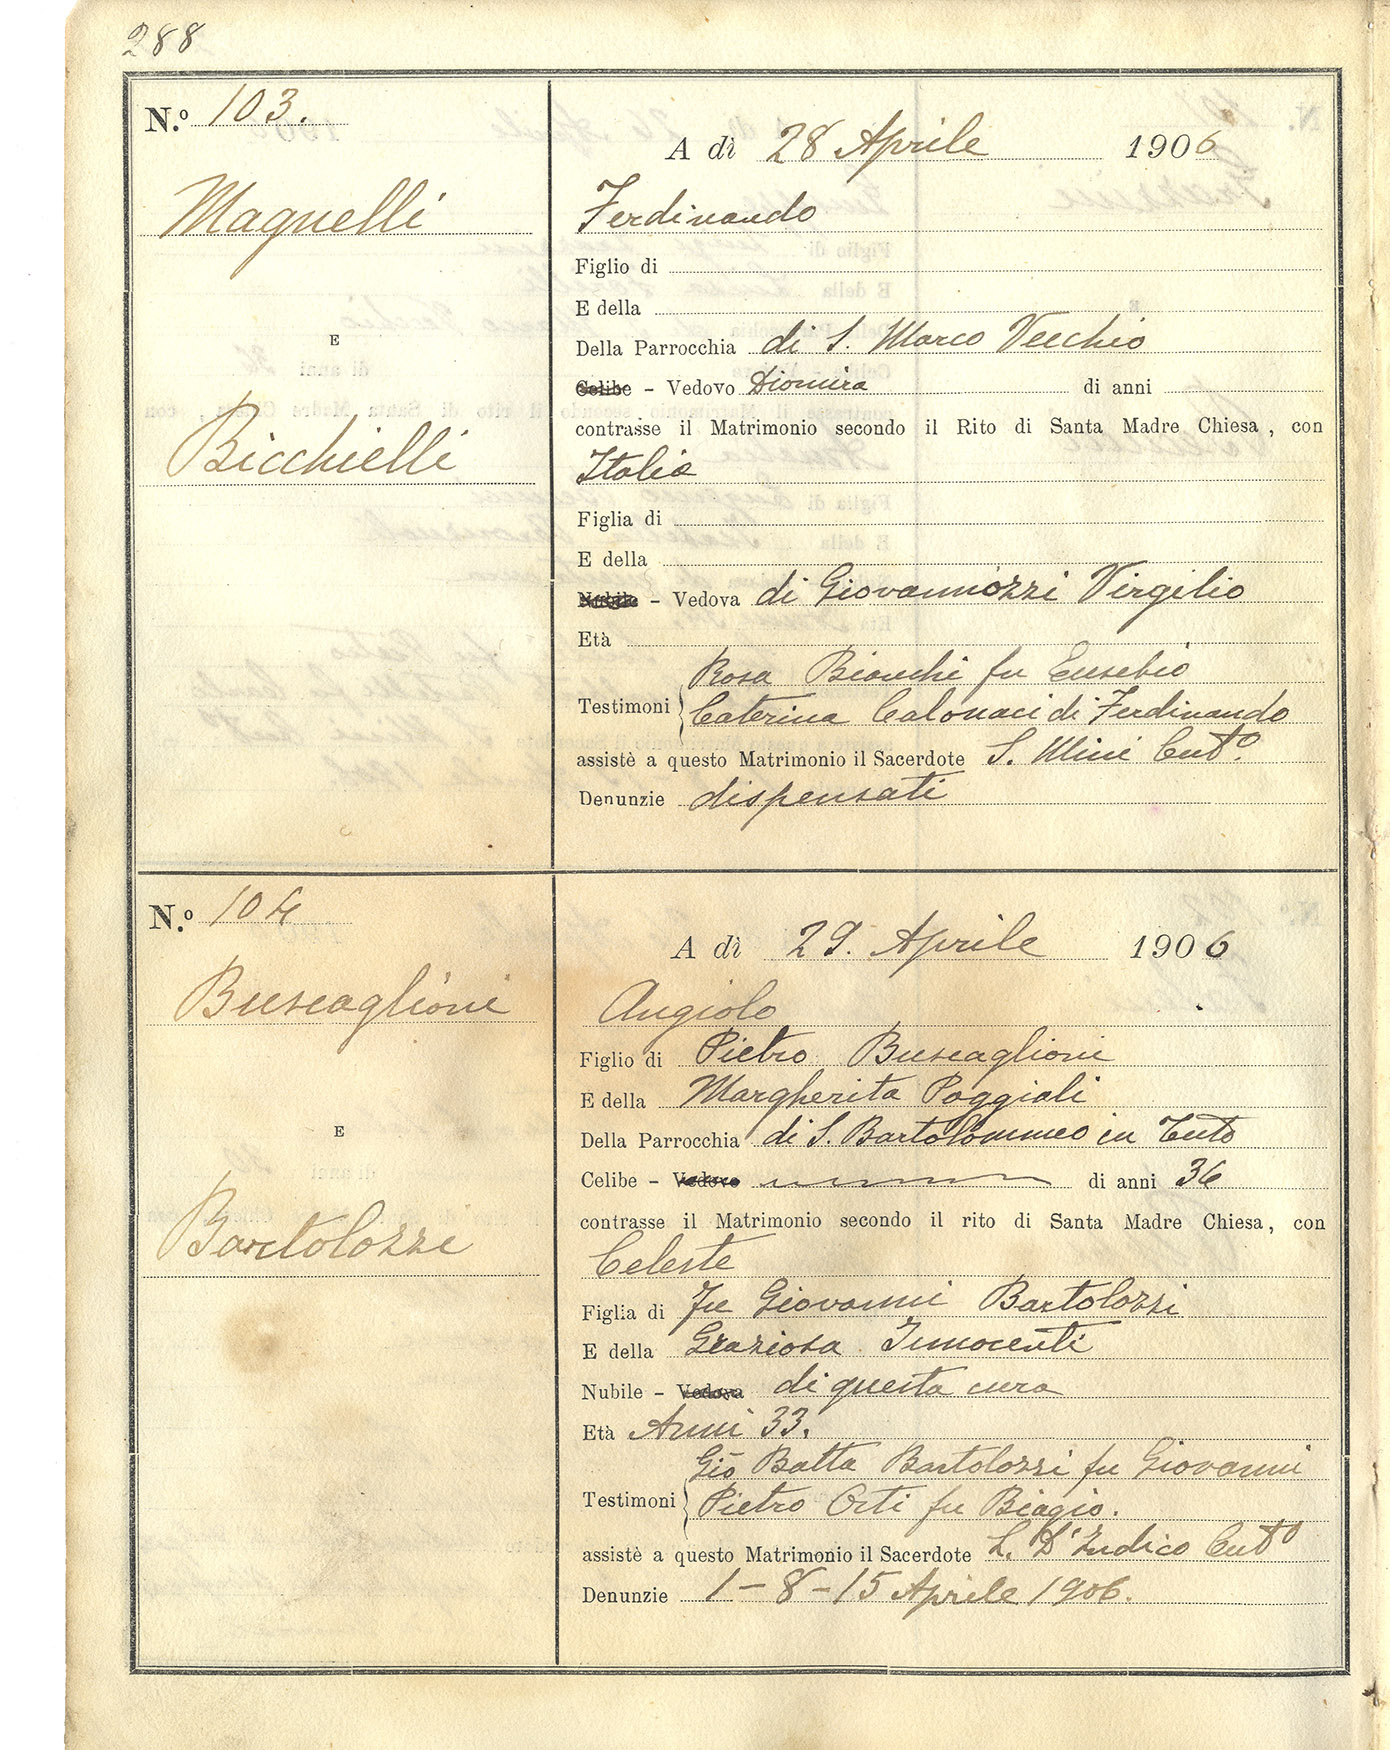 288
N.º 103.
Magnelli
E
Bicchielli
A dì 28 Aprile 1906
Ferdinando
Figlio di
E della
Della Parrocchia di S. Marco Vecchio
Celibe - Vedovo Diomira di anni
contrasse il Matrimonio secondo il Rito di Santa Madre Chiesa, con
Italia
Figlia di
E della
Nubile - Vedova di Giovannozzi Virgilio
Età
Testimoni Rosa Bianchi fu Eusebio
Caterina Calonaci di Ferdinando
assistè a questo Matrimonio il Sacerdote S. Mini Cut.º
Denunzie dispensati
N.º 104
Buscaglioni
E
Bartolozzi
A dì 29. Aprile 1906
Angiolo
Figlio di Pietro Buscaglioni
E della Margherita Poggiali
Della Parrocchia di S. Bartolommeo in Tuto
Celibe - Vedovo di anni 36
contrasse il Matrimonio secondo il rito di Santa Madre Chiesa, con
Celeste
Figlia di fu Giovanni Bartolozzi
E della Graziosa Innocenti
Nubile - Vedova di questa cura
Età Anni 33.
Gio Batta Bartolozzi fu Giovanni
Testimoni Pietro Orti fu Biagio.
assistè a questo Matrimonio il Sacerdote L. D'Indico Cutº
Denunzie 1-8-15 Aprile 1906.